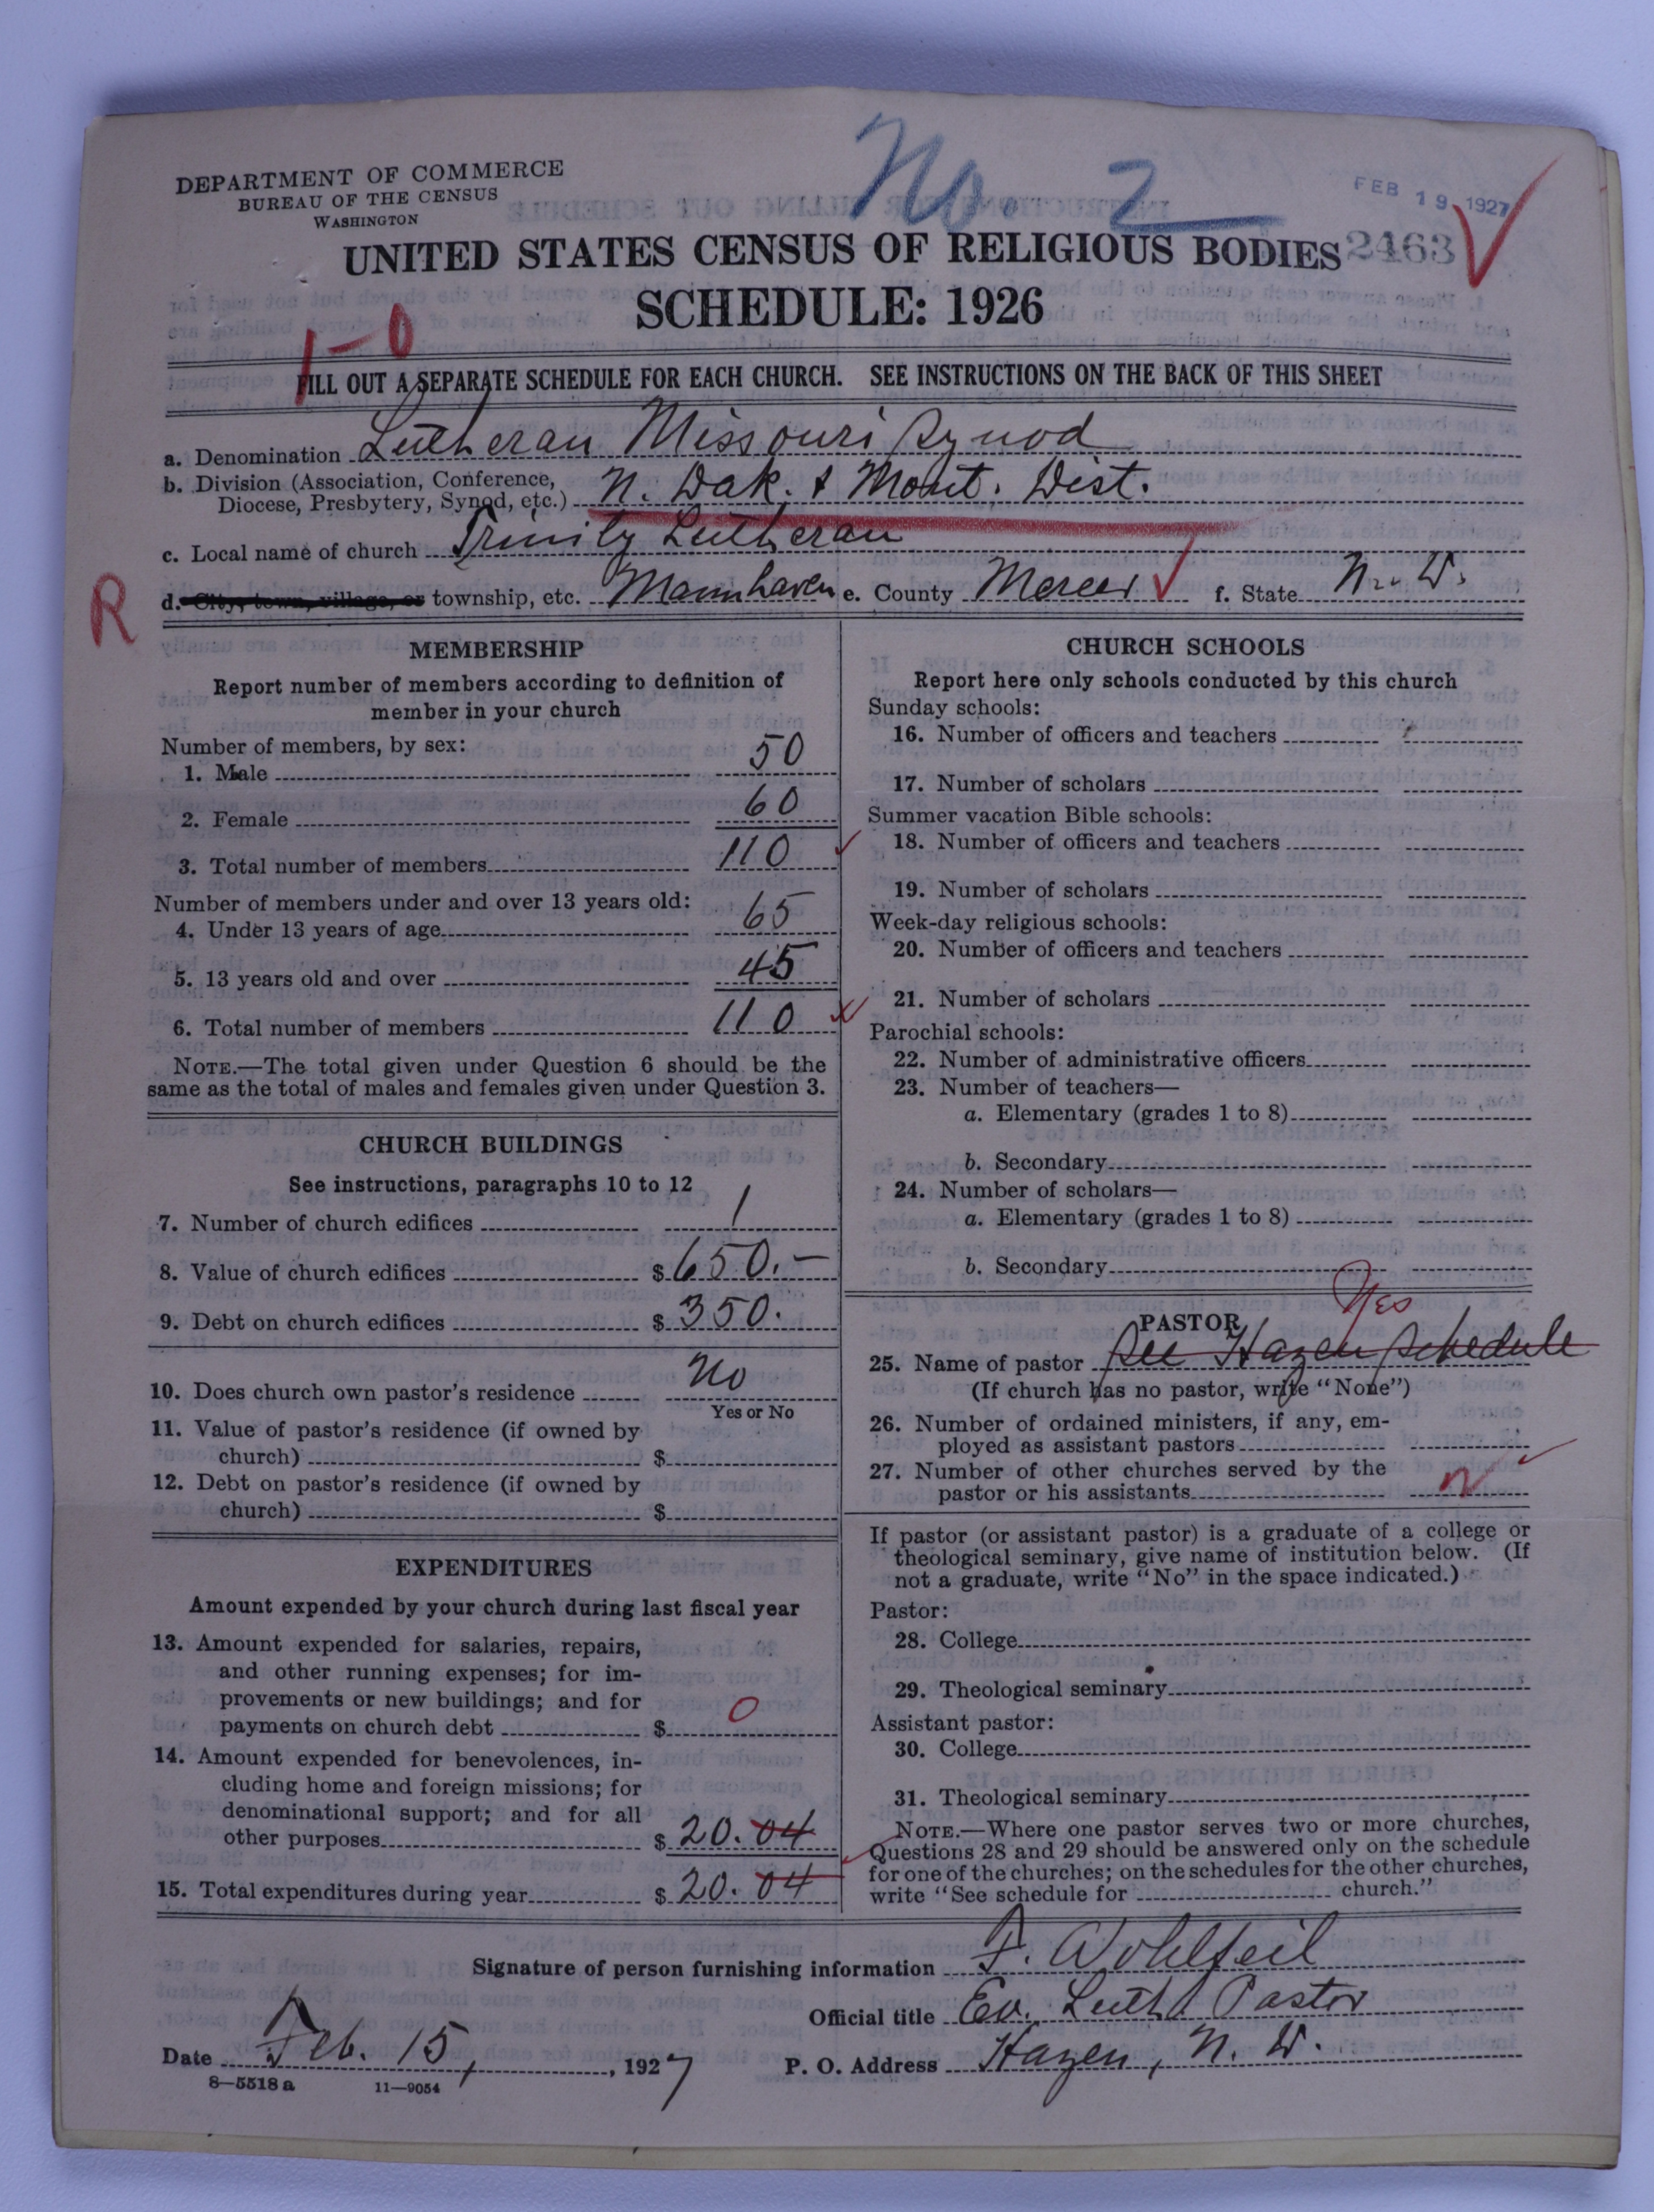 No. 2
FEB 19 1927
DEPARTMENT OF COMMERCE
BUREAU OF THE CENSUS
WASHINGTON
UNITED STATES CENSUS OF RELIGIOUS BODIES 2463
SCHEDULE: 1926
1-0
FILL OUT A SEPARATE SCHEDULE FOR EACH CHURCH. SEE INSTRUCTIONS ON THE BACK OF THIS SHEET
a. Denomination Lutheran Missouri Synod
b. Division (Association, Conference,
Diocese, Presbytery, Synod, etc.) N. Dak. & Mont. Dist.
c. Local name of church Trinity Lutheran
R
d. City, town, village, or township, etc. Mannhaven e. County Mercer f. State N. D.
MEMBERSHIP
Report number of members according to definition of
member in your church
Number of members, by sex:
1. Male 50
2. Female 60
3. Total number of members 110
Number of members under and over 13 years old:
4. Under 13 years of age 65
5. 13 years old and over 45
6. Total number of members 110
NOTE.—The total given under Question 6 should be the
same as the total of males and females given under Question 3.
CHURCH BUILDINGS
See instructions, paragraphs 10 to 12
7. Number of church edifices 1
8. Value of church edifices $ 650.—
9. Debt on church edifices $ 350.
10. Does church own pastor's residence No
Yes or No
11. Value of pastor's residence (if owned by
church) $
12. Debt on pastor's residence (if owned by
church) $
EXPENDITURES
Amount expended by your church during last fiscal year
13. Amount expended for salaries, repairs,
and other running expenses; for im-
provements or new buildings; and for
payments on church debt $ 0
14. Amount expended for benevolences, in-
cluding home and foreign missions; for
denominational support; and for all
other purposes $ 20.04
15. Total expenditures during year $ 20.04
CHURCH SCHOOLS
Report here only schools conducted by this church
Sunday schools:
16. Number of officers and teachers
17. Number of scholars
Summer vacation Bible schools:
18. Number of officers and teachers
19. Number of scholars
Week-day religious schools:
20. Number of officers and teachers
21. Number of scholars
Parochial schools:
22. Number of administrative officers
23. Number of teachers—
a. Elementary (grades 1 to 8)
b. Secondary
24. Number of scholars—
a. Elementary (grades 1 to 8)
b. Secondary
Yes
PASTOR
25. Name of pastor See Hazen schedule
(If church has no pastor, write "None")
26. Number of ordained ministers, if any, em-
ployed as assistant pastors
27. Number of other churches served by the
pastor or his assistants
If pastor (or assistant pastor) is a graduate of a college or
theological seminary, give name of institution below. (If
not a graduate, write "No" in the space indicated.)
Pastor:
28. College
29. Theological seminary
Assistant pastor:
30. College
31. Theological seminary
NOTE.—Where one pastor serves two or more churches,
Questions 28 and 29 should be answered only on the schedule
for one of the churches; on the schedules for the other churches,
write "See schedule for church."
Signature of person furnishing information F. Wohlfeil
Official title Ev. Luth. Pastor
Date Feb. 15, 1927 P. O. Address Hazen, N. D.
8—5518 a 11—9054